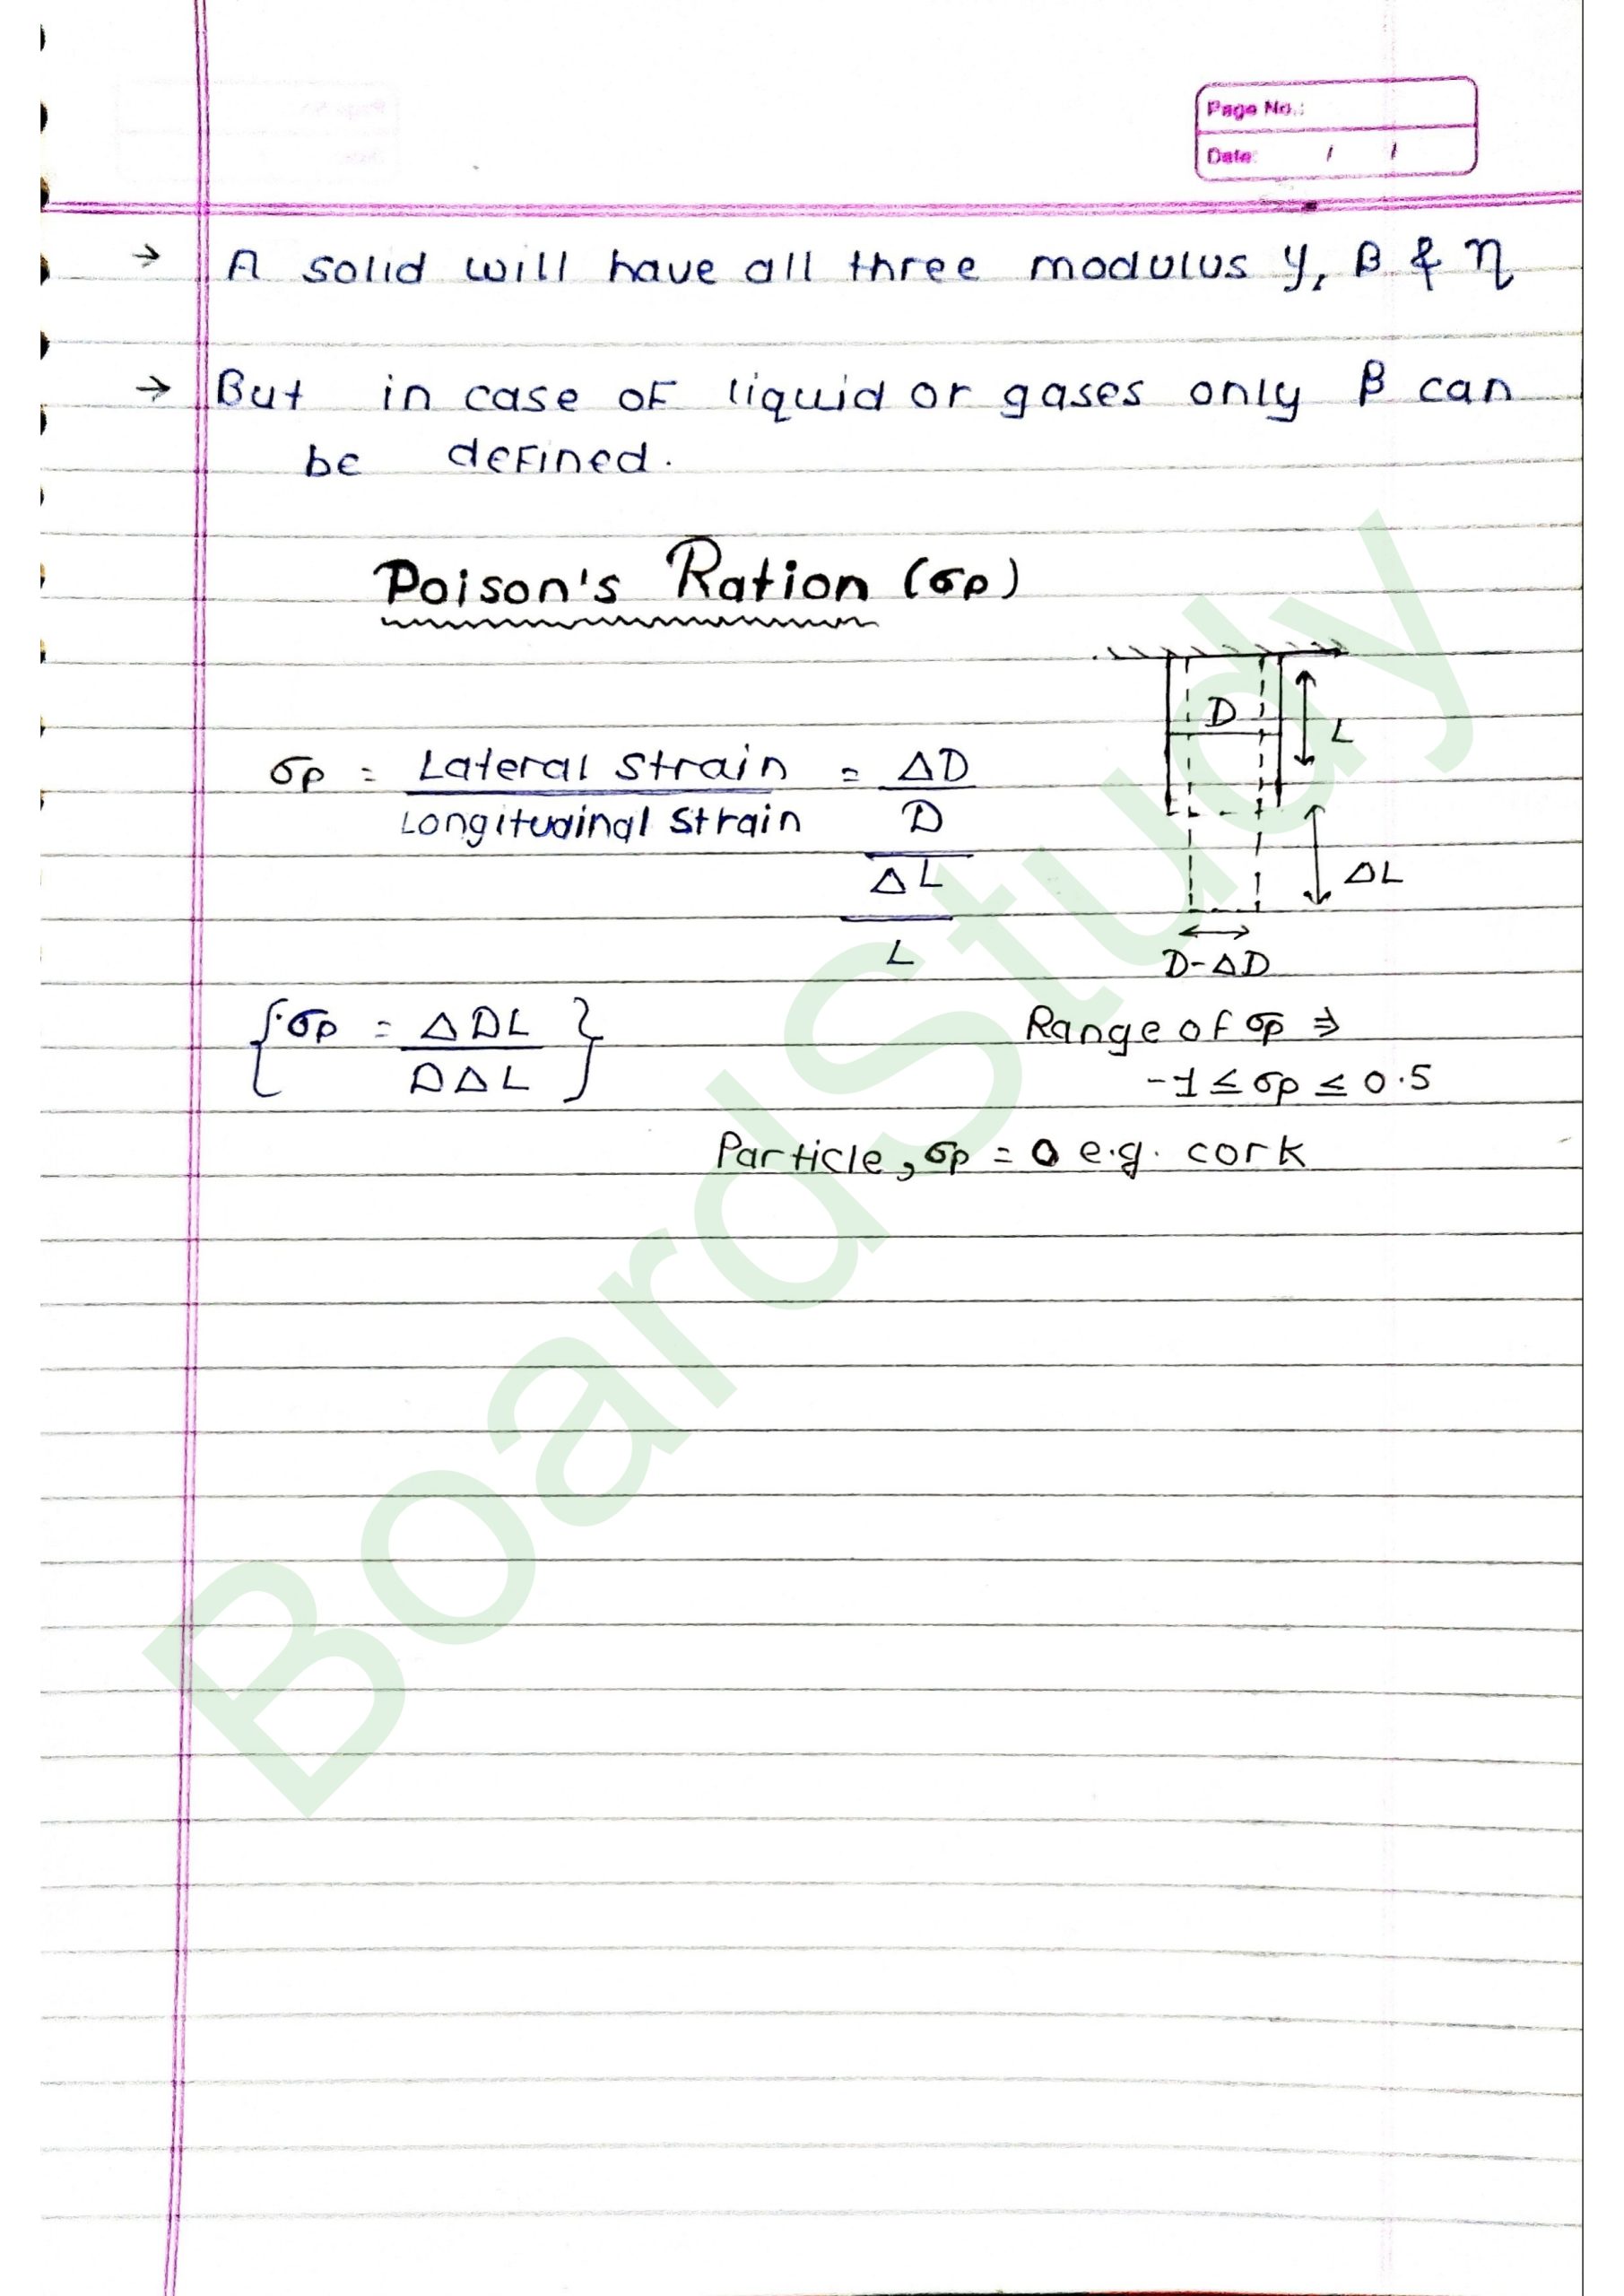 Page No.:
Date: / /
→ A solid will have all three modulus y, β & η
→ But in case of liquid or gases only β can
be defined.
Poison's Ration (σp)
D
L
σp = Lateral Strain = ΔD
Longitudinal Strain D
ΔL
L
ΔL
D-ΔD
{σp = ΔDL}
DΔL
Range of σp ⇒
-1 ≤ σp ≤ 0.5
Particle, σp = 0 e.g. cork
BoardStudy